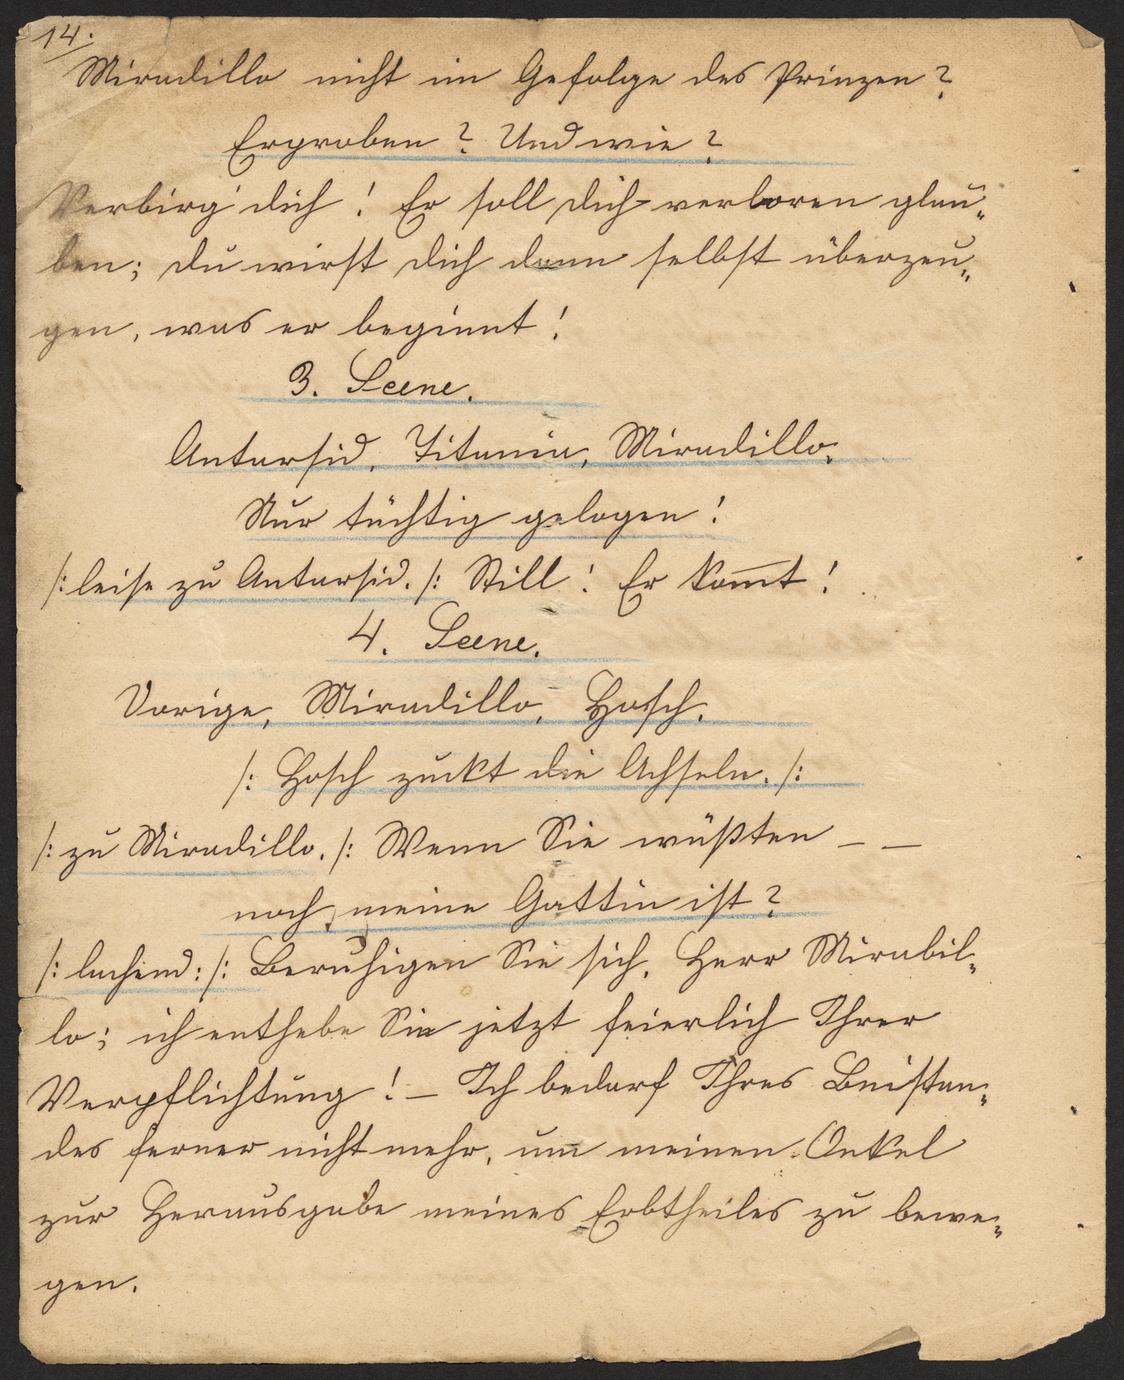 14.
Miradillo nicht im Gefolge des Prinzen?
Erproben? Und wie?
Verbirg' dich! Er soll dich verloren glau„
ben; du wirst dich dann selbst überzeu„
gen, was er beginnt!
3. Scene.
Antarsid, Titania, Miradillo.
Nur tüchtig gelogen!
/: leise zu Antarsid. /: Still! Er kom̅t!
4. Scene.
Vorige, Miradillo, Hosch.
/: Hosch zuckt die Achseln. /:
/: zu Miradillo. /: Wenn Sie wüßten _ _
noch meine Gattin ist?
/: lachend: /: Beruhigen Sie sich, Herr Mirabil„
lo; ich enthebe Sie jetzt feierlich Ihrer
Verpflichtung! _ Ich bedarf Ihres Beistan„
des ferner nicht mehr, um meinen Onkel
zur Herausgabe meines Erbtheiles zu bewe„
gen.